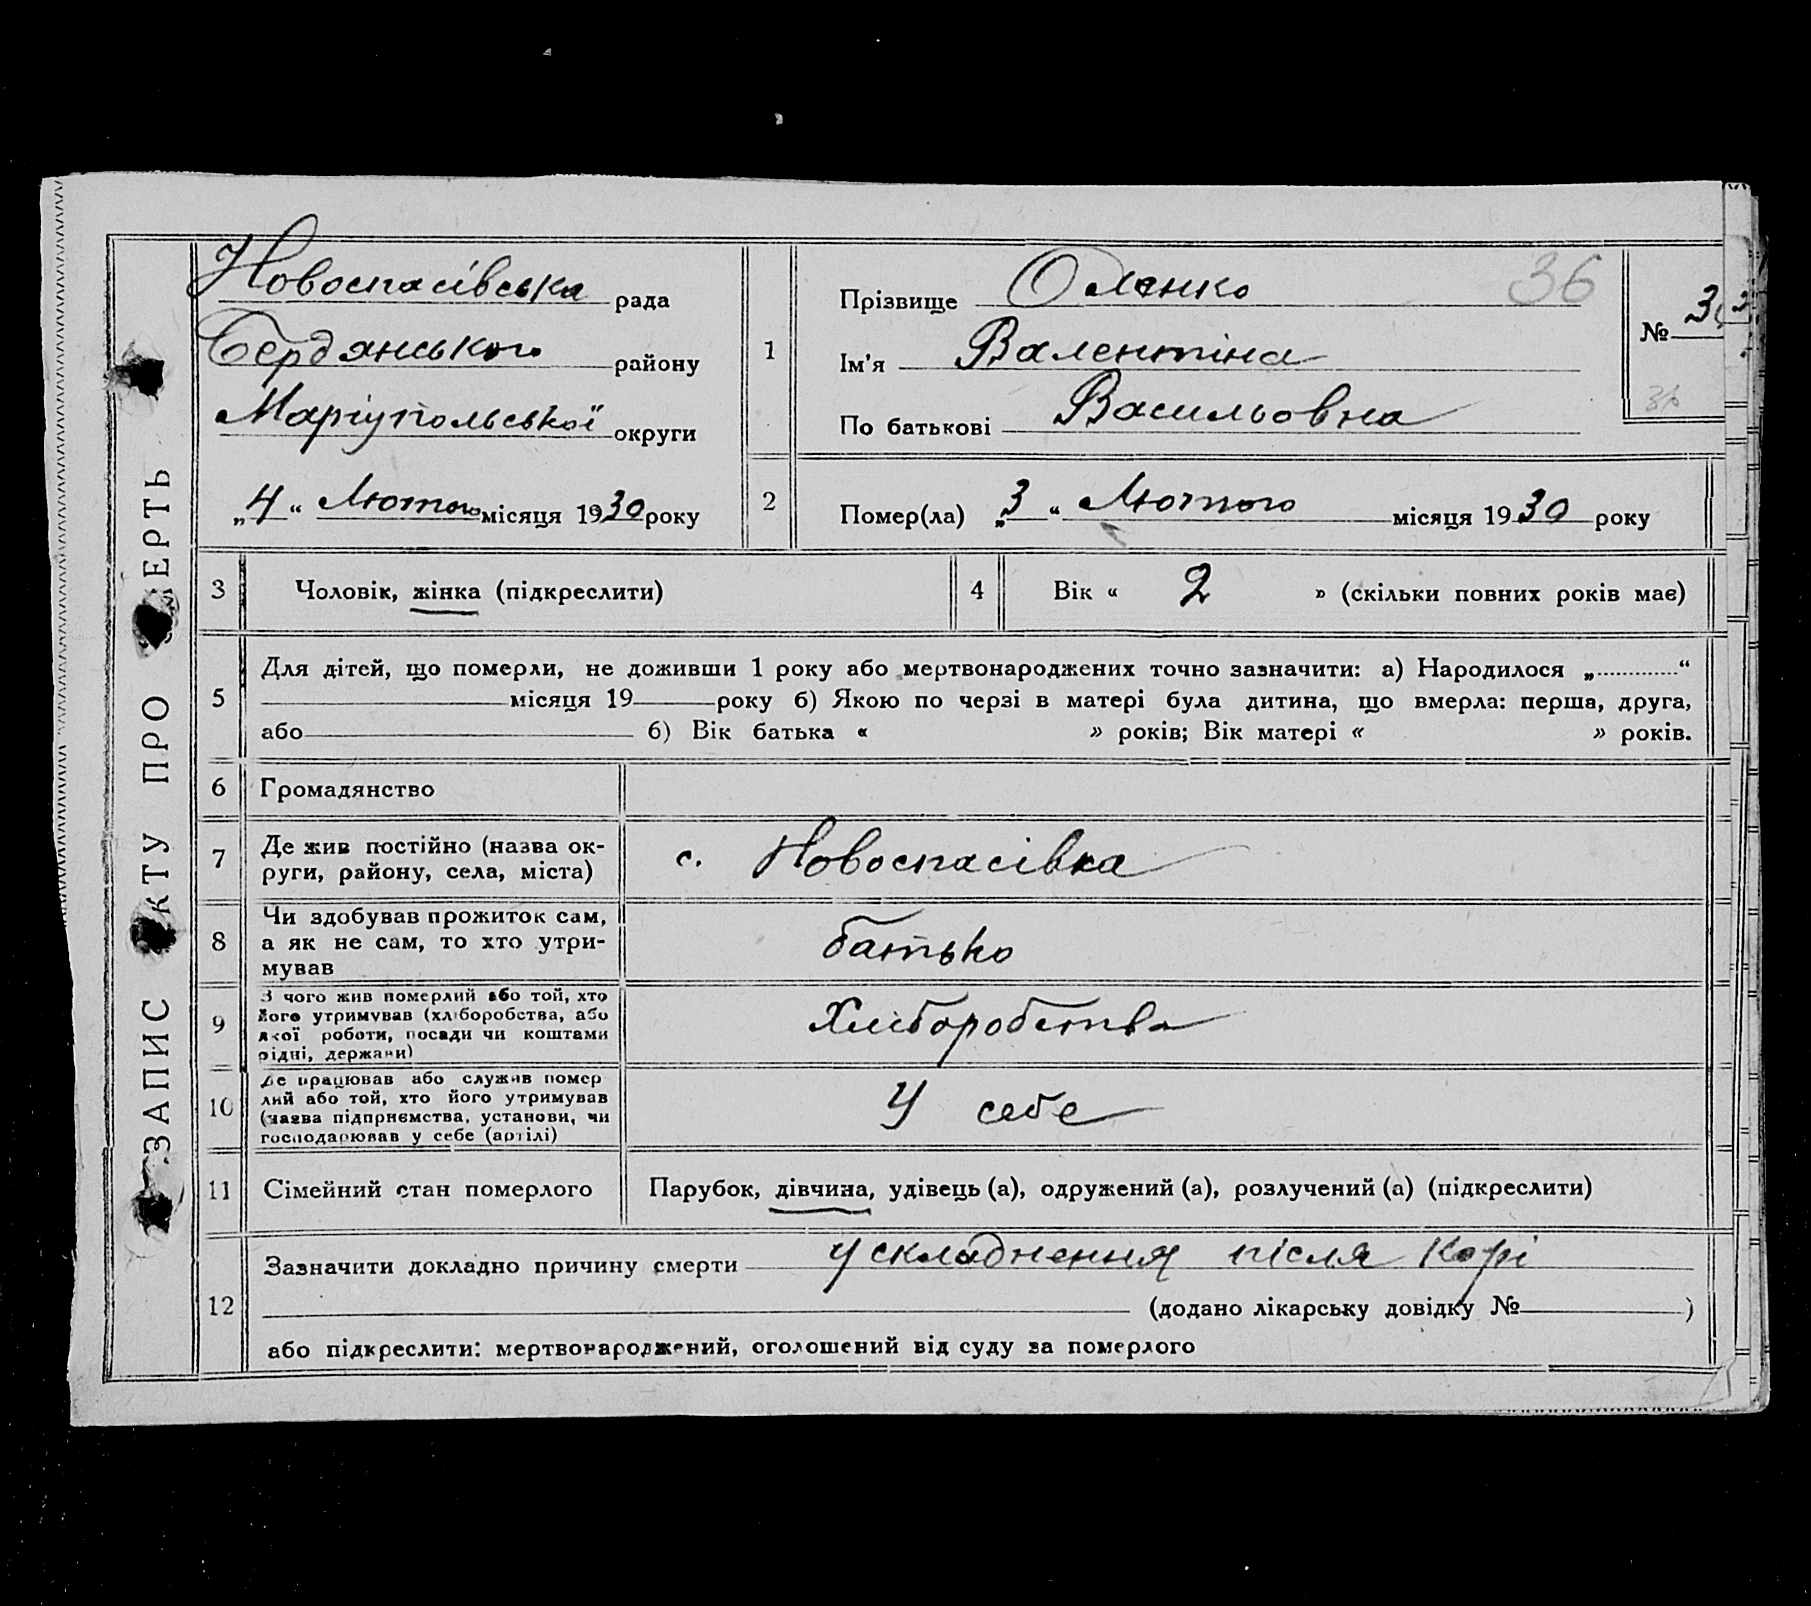 ЗАПИС АКТУ ПРО СМЕРТЬ
Новоспасівська рада
Бердянського району
Маріупольської округи
„4“ Лютого місяця 1930 року
1
Прізвище Оленко
Ім'я Валентіна
По батькові Васильовна
36
№ 36
36
2
Помер(ла) „3“ Лютого місяця 1930 року
3 Чоловік, жінка (підкреслити)
4 Вік « 2 » (скільки повних років має)
5 Для дітей, що померли, не доживши 1 року або мертвонароджених точно зазначити: а) Народилося „ “
місяця 19 року б) Якою по черзі в матері була дитина, що вмерла: перша, друга,
або б) Вік батька « » років; Вік матері « » років.
6 Громадянство
7 Де жив постійно (назва ок-
руги, району, села, міста)
с. Новоспасівка
8 Чи здобував прожиток сам,
а як не сам, то хто утри-
мував
батько
9 З чого жив померлий або той, хто
його утримував (хліборобства, або
якої роботи, посади чи коштами
рідні, держави)
Хліборобства
10 Де працював або служив помер
лий або той, хто його утримував
(назва підприємства, установи, чи
господарював у себе (артілі)
У себе
11 Сімейний стан померлого
Парубок, дівчина, удівець (а), одружений (а), розлучений (а) (підкреслити)
12 Зазначити докладно причину смерти ускладнення після корі
(додано лікарську довідку № )
або підкреслити: мертвонароджений, оголошений від суду за померлого